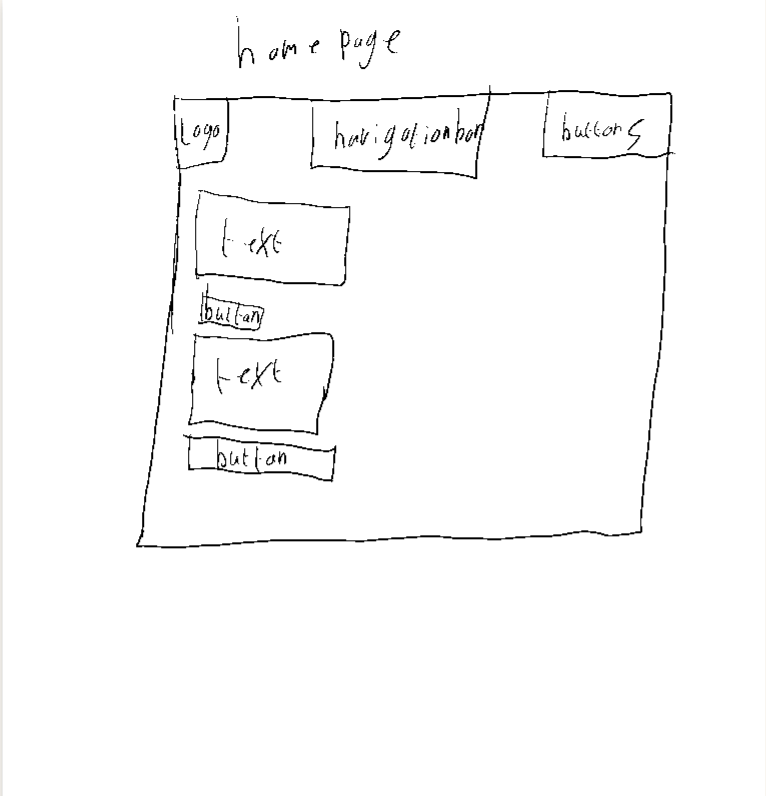 home page
Logo navigationbar buttons
text
button
text
button